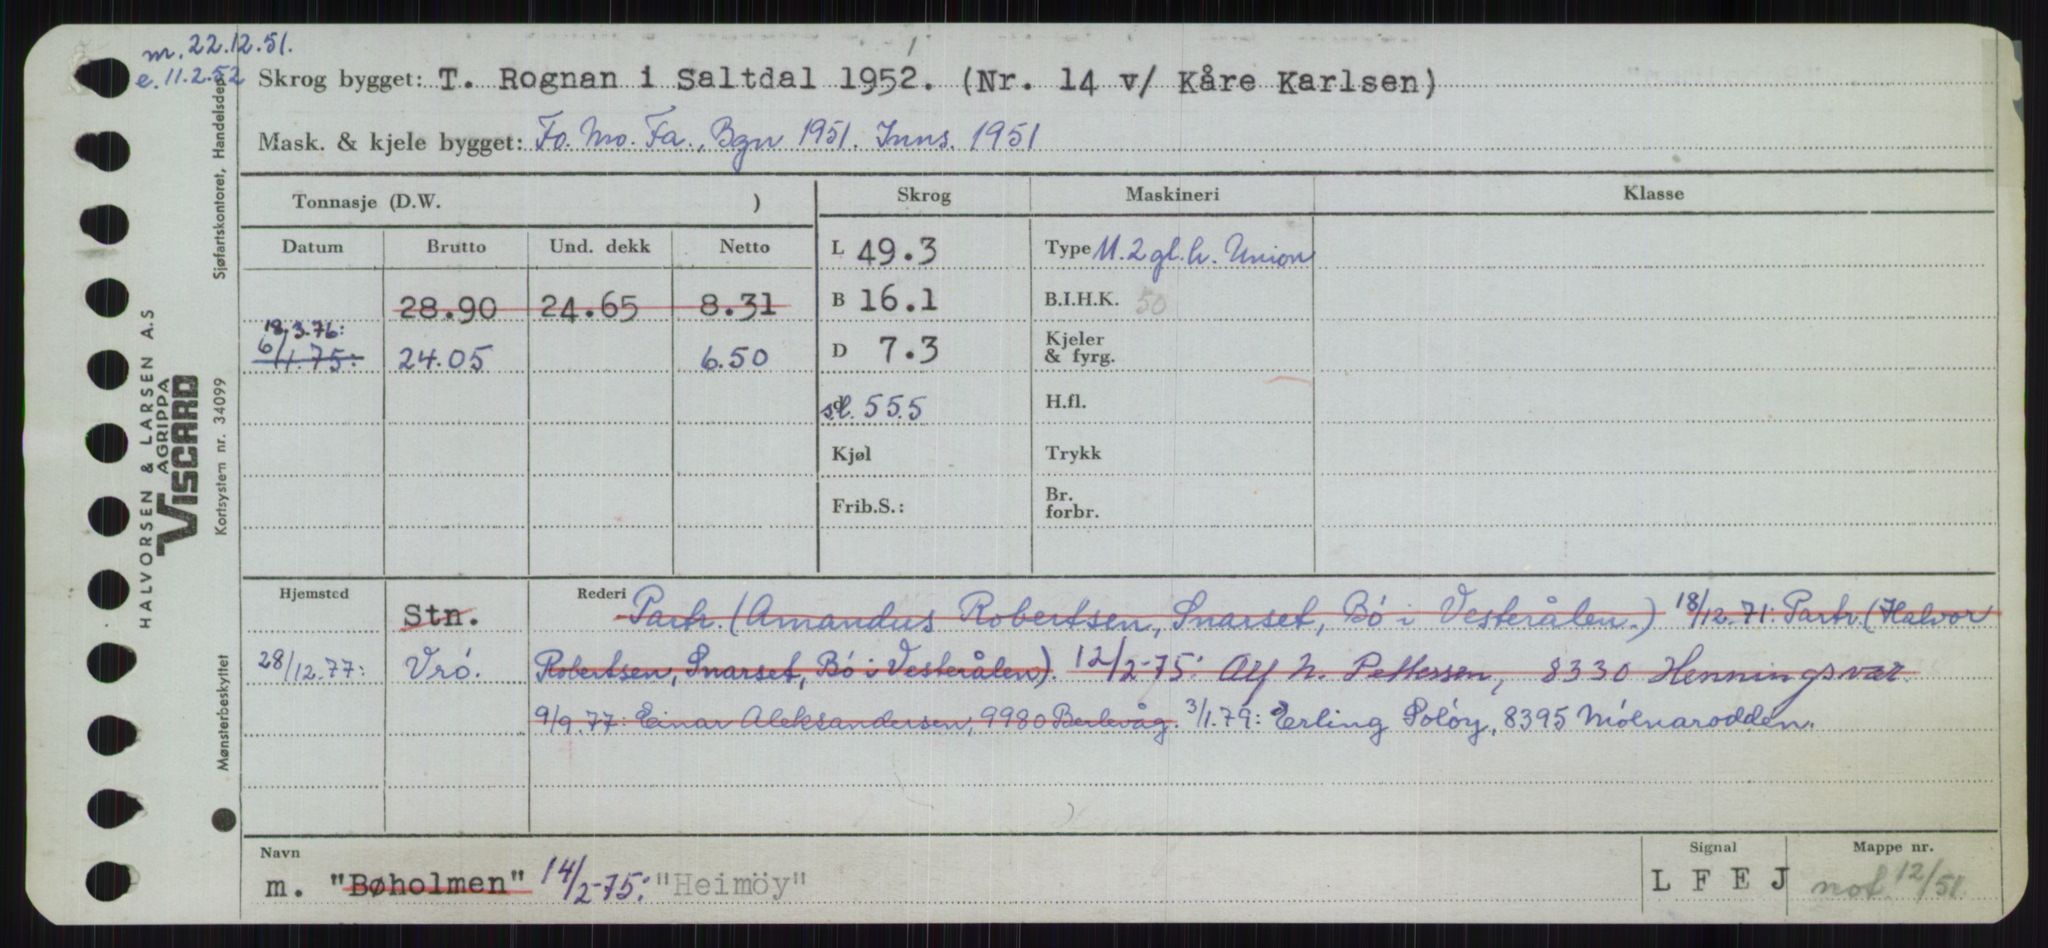 m. 22.12.51.
e. 11.2.52
Skrog bygget: T. Rognan i Saltdal 1952. (Nr. 14 v/ Kåre Karlsen)
Mask. & kjele bygget: Fo. Mo. Fa., Bgn 1951. Inns. 1951
Tonnasje (D.W. )
Skrog Maskineri Klasse
Datum Brutto Und. dekk Netto
L 49.3 Type M. 2 gl. h. Union
28.90 24.65 8.31 B 16.1 B.I.H.K. 50
18/3.76:
6/1.75: 24.05 6.50 D 7.3 Kjeler & fyrg.
sl. 55.5 H.fl.
Kjøl Trykk
Frib.S.: Br. forbr.
Hjemsted Stn. Rederi Partr. (Amandus Robertsen, Snarset, Bö i Vesterålen.) 18/12.71: Partr. (Halvor
28/12.77: Vrö. Robertsen, Snarset, Bö i Vesterålen). 12/2-75: Alf N. Pettersen, 8330 Henningsvær
9/9.77: Einar Aleksandersen, 9980 Berlevåg. 3/1.79: Erling Solöy, 8395 Mölnarodden.
Navn Signal Mappe nr.
m. "Bøholmen" 14/2-75: "Heimöy" L F E J not. 12/51.
HALVORSEN & LARSEN A.S
AGRIPPA
VISCARD
Sjøfartskontoret, Handelsdep.
Kortsystem nr. 34099
Mønsterbeskyttet